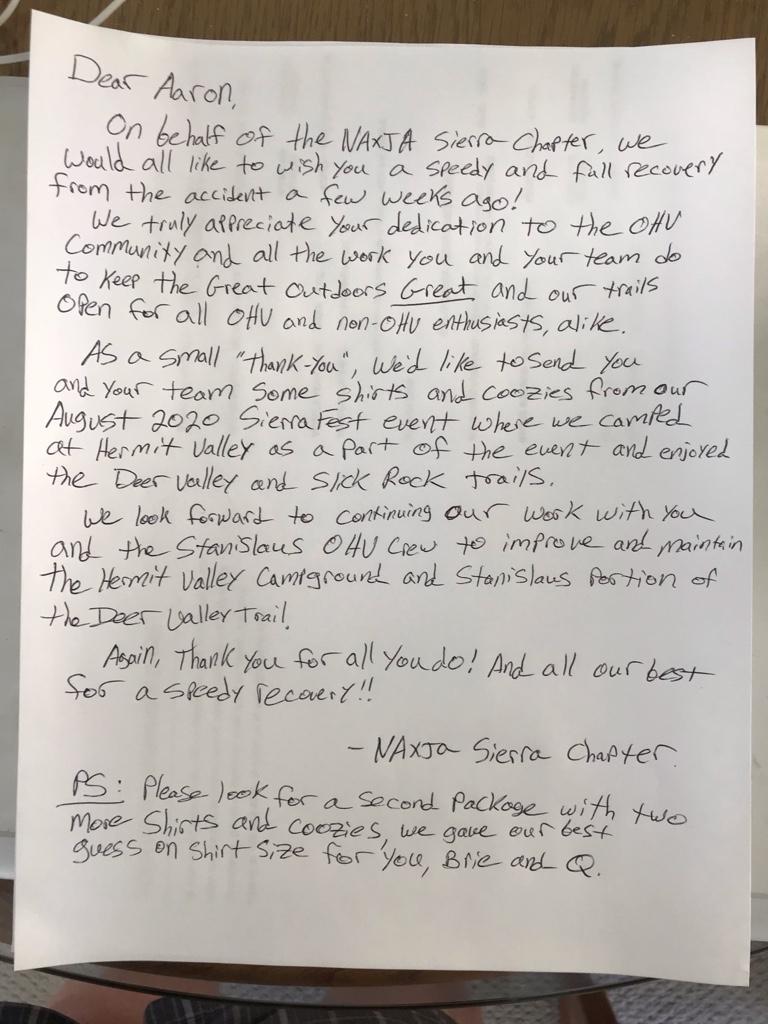 Dear Aaron,
On behalf of the NAXJA Sierra Chapter, we
would all like to wish you a speedy and full recovery
from the accident a few weeks ago!
We truly appreciate your dedication to the OHV
Community and all the work you and your team do
to keep the Great Outdoors Great and our trails
open for all OHV and non-OHV enthusiasts, alike.
As a small "Thank-You", we'd like to send you
and your team some shirts and coozies from our
August 2020 SierraFest event where we camped
at Hermit Valley as a part of the event and enjoyed
the Deer Valley and Slick Rock trails.
We look forward to continuing our work with you
and the Stanislaus OHV Crew to improve and maintain
the Hermit Valley Campground and Stanislaus portion of
the Deer Valley Trail.
Again, Thank you for all you do! And all our best
for a speedy recovery!!
- NAXJA Sierra Chapter.
PS: Please look for a second package with two
more shirts and coozies, we gave our best
guess on shirt size for you, Brie and Q.